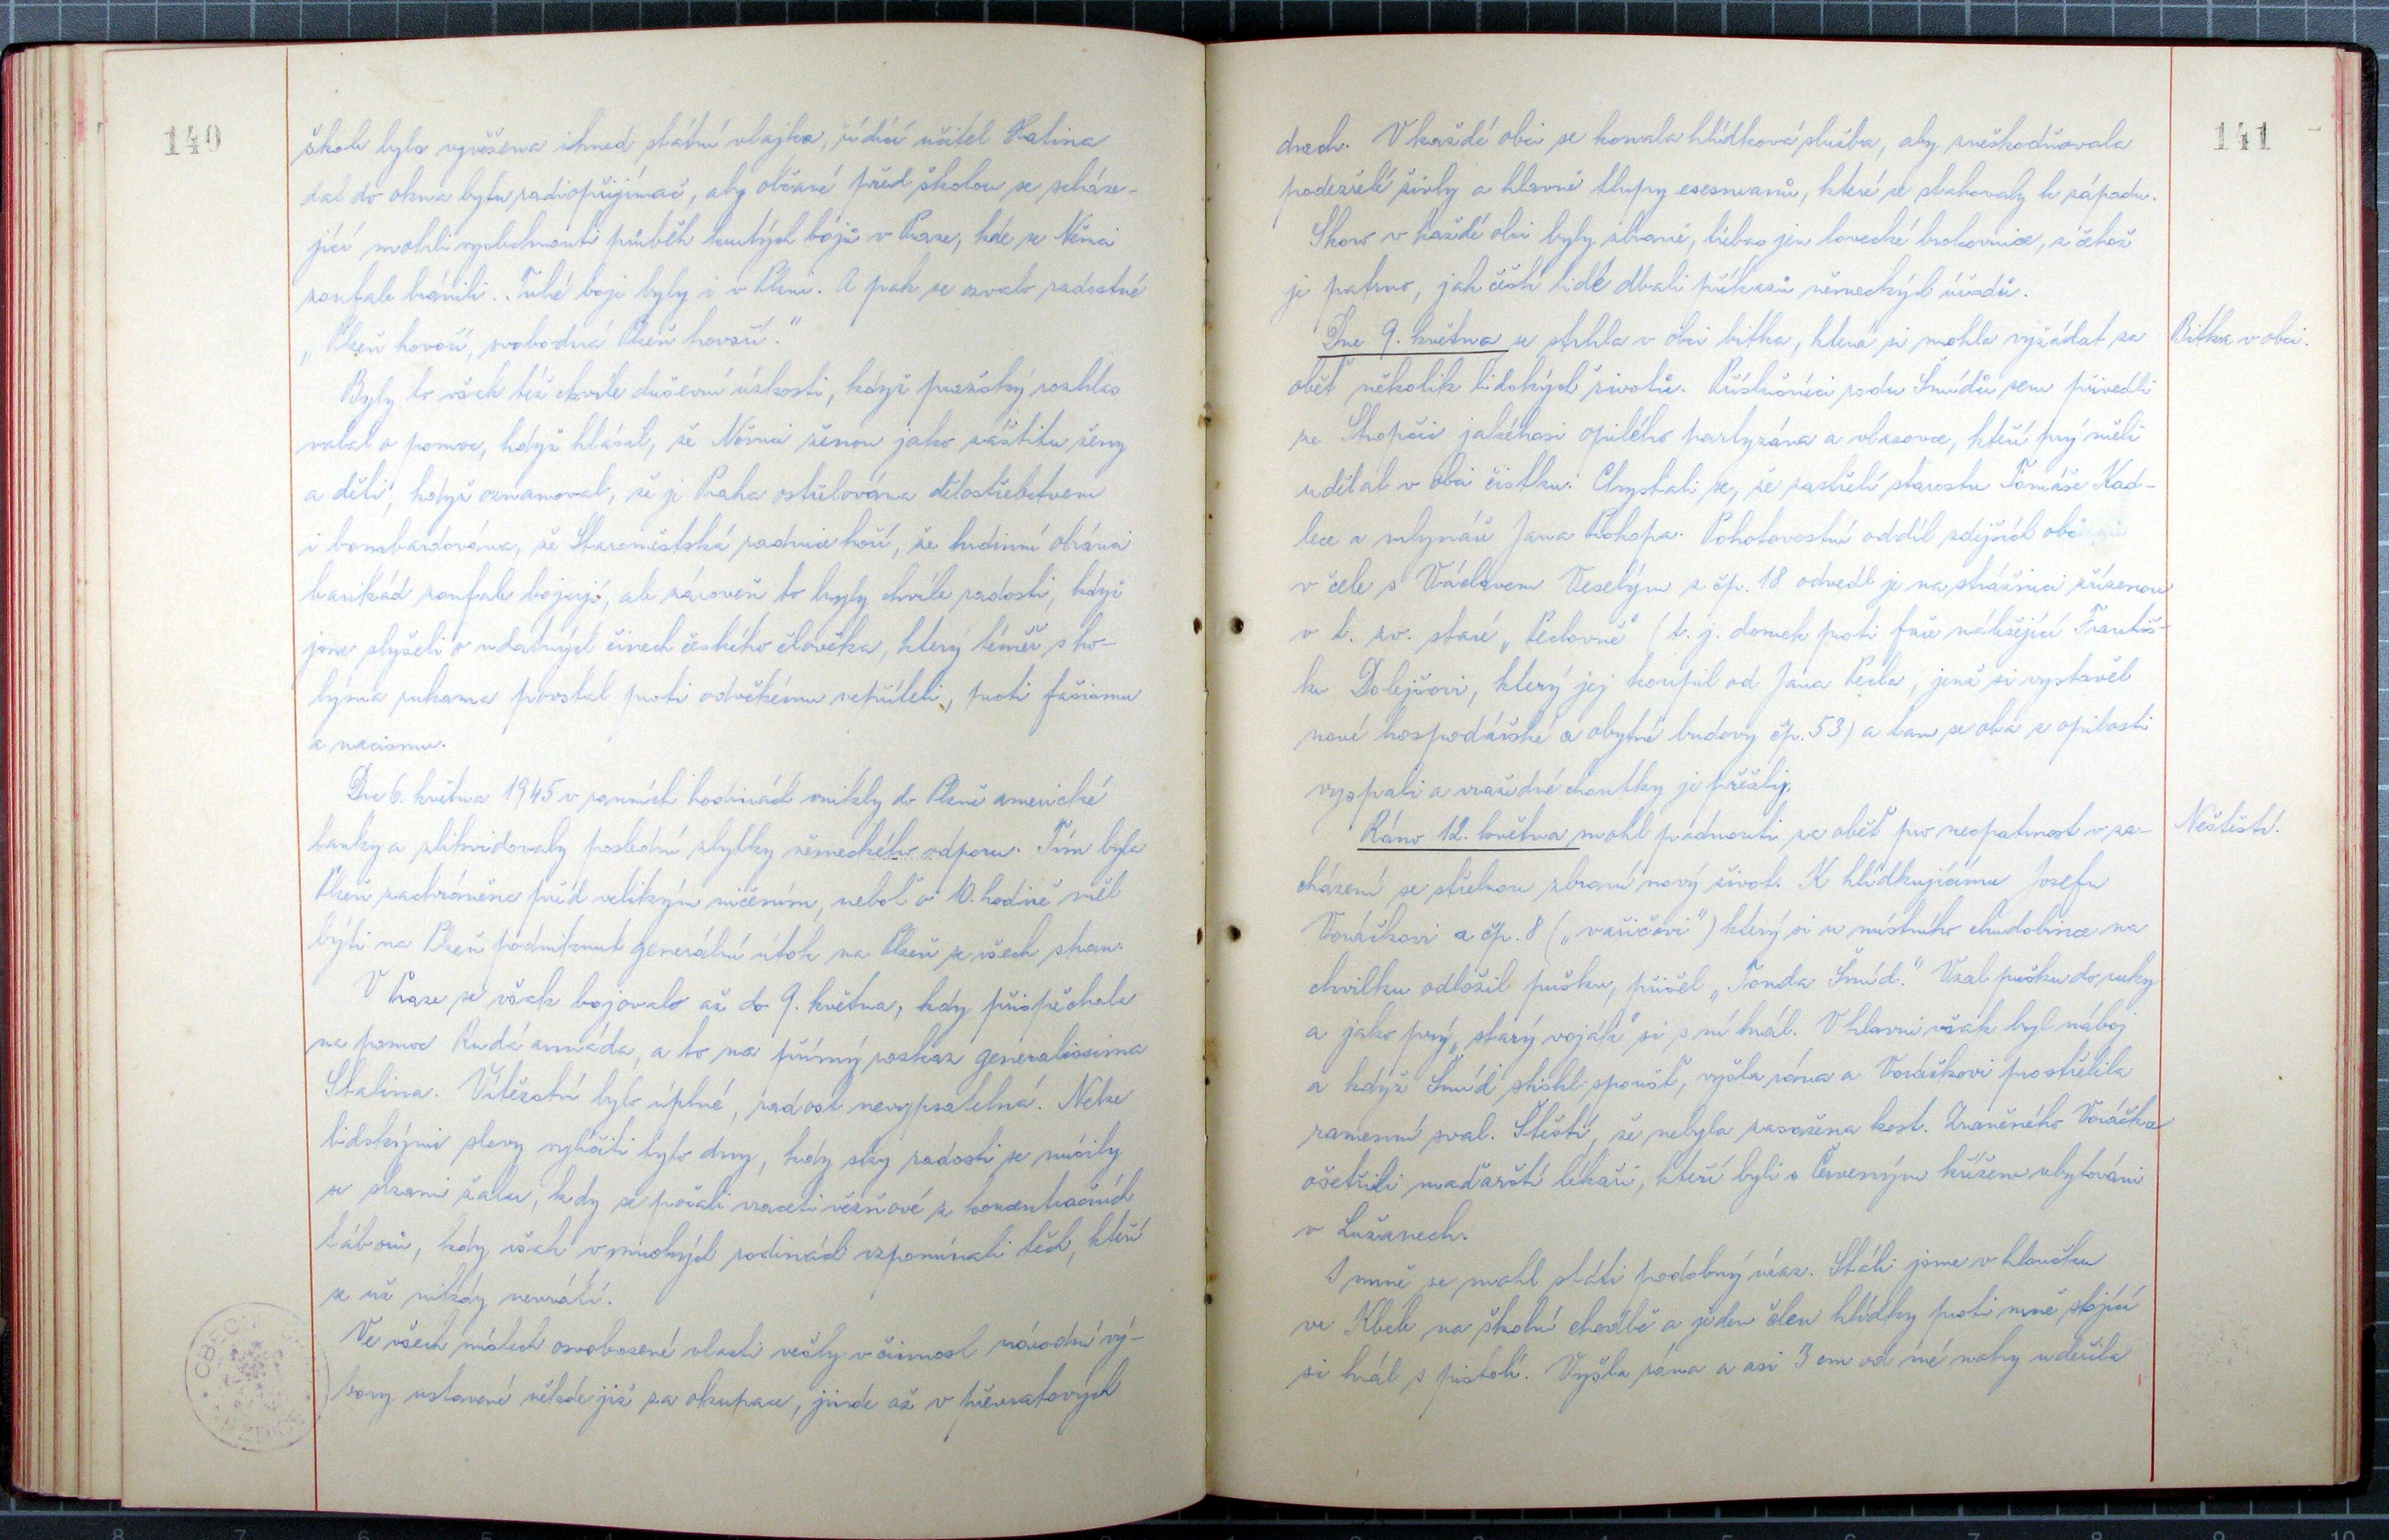 140
škole byla vyvěšena ihned státní vlajka, řídící učitel Kalina
dal do okna bytu radiopřijímač, aby občané před školou se scháze-
jící mohli vyslechnouti průběh krutých bojů v Praze, kde se Němci
zoufale bránili. Tuhé boje byly i v Plzni. A pak se ozvalo radostné
„Plzeň hovoří, svobodná Plzeň hovoří."
Byly to však též chvíle duševní úzkosti, když pražský rozhlas
volal o pomoc, když hlásil, že Němci ženou jako záštitu ženy
a děti, když oznamoval, že je Praha ostřelována dělostřelectvem
i bombardována, že Staroměstská radnice hoří, že hrdinní obránci
barikád zoufale bojují, ale zároveň to byly chvíle radosti, když
jsme slyšeli o udatných činech českého člověka, který téměř s ho-
lýma rukama povstal proti odvěkému nepříteli, proti fašismu
a nacismu.
Dne 6. května 1945 v ranních hodinách vnikly do Plzně americké
tanky a zlikvidovaly poslední zbytky německého odporu. Tím byla
Plzeň zachráněna před velikým ničením, neboť o 10. hodině měl
býti na Plzeň podniknut generální útok na Plzeň se všech stran.
V Praze se však bojovalo až do 9. května, kdy přispěchala
na pomoc Rudá armáda, a to na přímý rozkaz generalissima
Stalina. Vítězství bylo úplné, radost nevypsatelná. Nelze
lidskými slovy vylíčiti tyto dny, kdy slzy radosti se mísily
se slzami žalu, kdy se počali vraceti vězňové z koncentračních
táborů, kdy však v mnohých rodinách vzpomínali těch, kteří
se už nikdy nevrátí.
Ve všech místech osvobozené vlasti vešly v činnost národní vý-
bory ustavené někde již za okupace, jinde až v převratových
141
dnech. V každé obci se konala hlídková služba, aby zneškodňovala
podezřelé živly a hlavně tlupy esesmanů, které se stahovaly k západu.
Skoro v každé obci byly zbraně, třebas jen lovecké brokovnice, z čehož
je patrno, jak čeští lidé dbali příkazů německých úřadů.
Dne 9. května se strhla v obci bitka, která si mohla vyžádat za
oběť několik lidských životů. Příslušníci rodu Šmídů sem přivedli
ze Stropčic jakéhosi opilého partyzána a vlasovce, kteří prý měli
udělat v obci čistku. Chystali se, že zastřelí starostu Tomáše Kad-
lece a mlynáře Jana Prokopa. Pohotovostní oddíl zdejších
v čele s Václavem Veselým z čp. 18 odvedl je na strážnici zřízenou
v t. zv. staré „Peclovně" (t. j. domek proti faře náležející Františ-
ku Dolejšovi, který jej koupil od Jana Pecla, jenž si vystavěl
nové hospodářské a obytné budovy čp. 53) a tam se oba z opilosti
vyspali a vražedné choutky je přešly.
Ráno 12. května mohl padnouti za oběť pro neopatrnost v za-
cházení se střelnou zbraní nový život. K hlídkujícímu Josefu
Voráčkovi z čp. 8 („vařičovi") který si u místního chudobince na
chvilku odložil pušku, přišel „Tonda Šmíd." Vzal pušku do ruky
a jako prý „starý voják" si s ní hrál. V hlavni však byl náboj
a když Šmíd stiskl spoušť, vyšla rána a Voráčkovi prostřelila
ramenní sval. Štěstí, že nebyla zasažena kost. Zraněného Voráčka
ošetřili maďarští lékaři, kteří byli s Červeným křížem ubytováni
v Lužanech.
I mně se mohl státi podobný úraz. Stáli jsme v hloučku
ve Kbele na školní chodbě a jeden člen hlídky proti mně stojící
si hrál s pistolí. Vyšla rána a asi 3 cm od mé nohy udeřila
Bitka v obci.
Neštěstí.